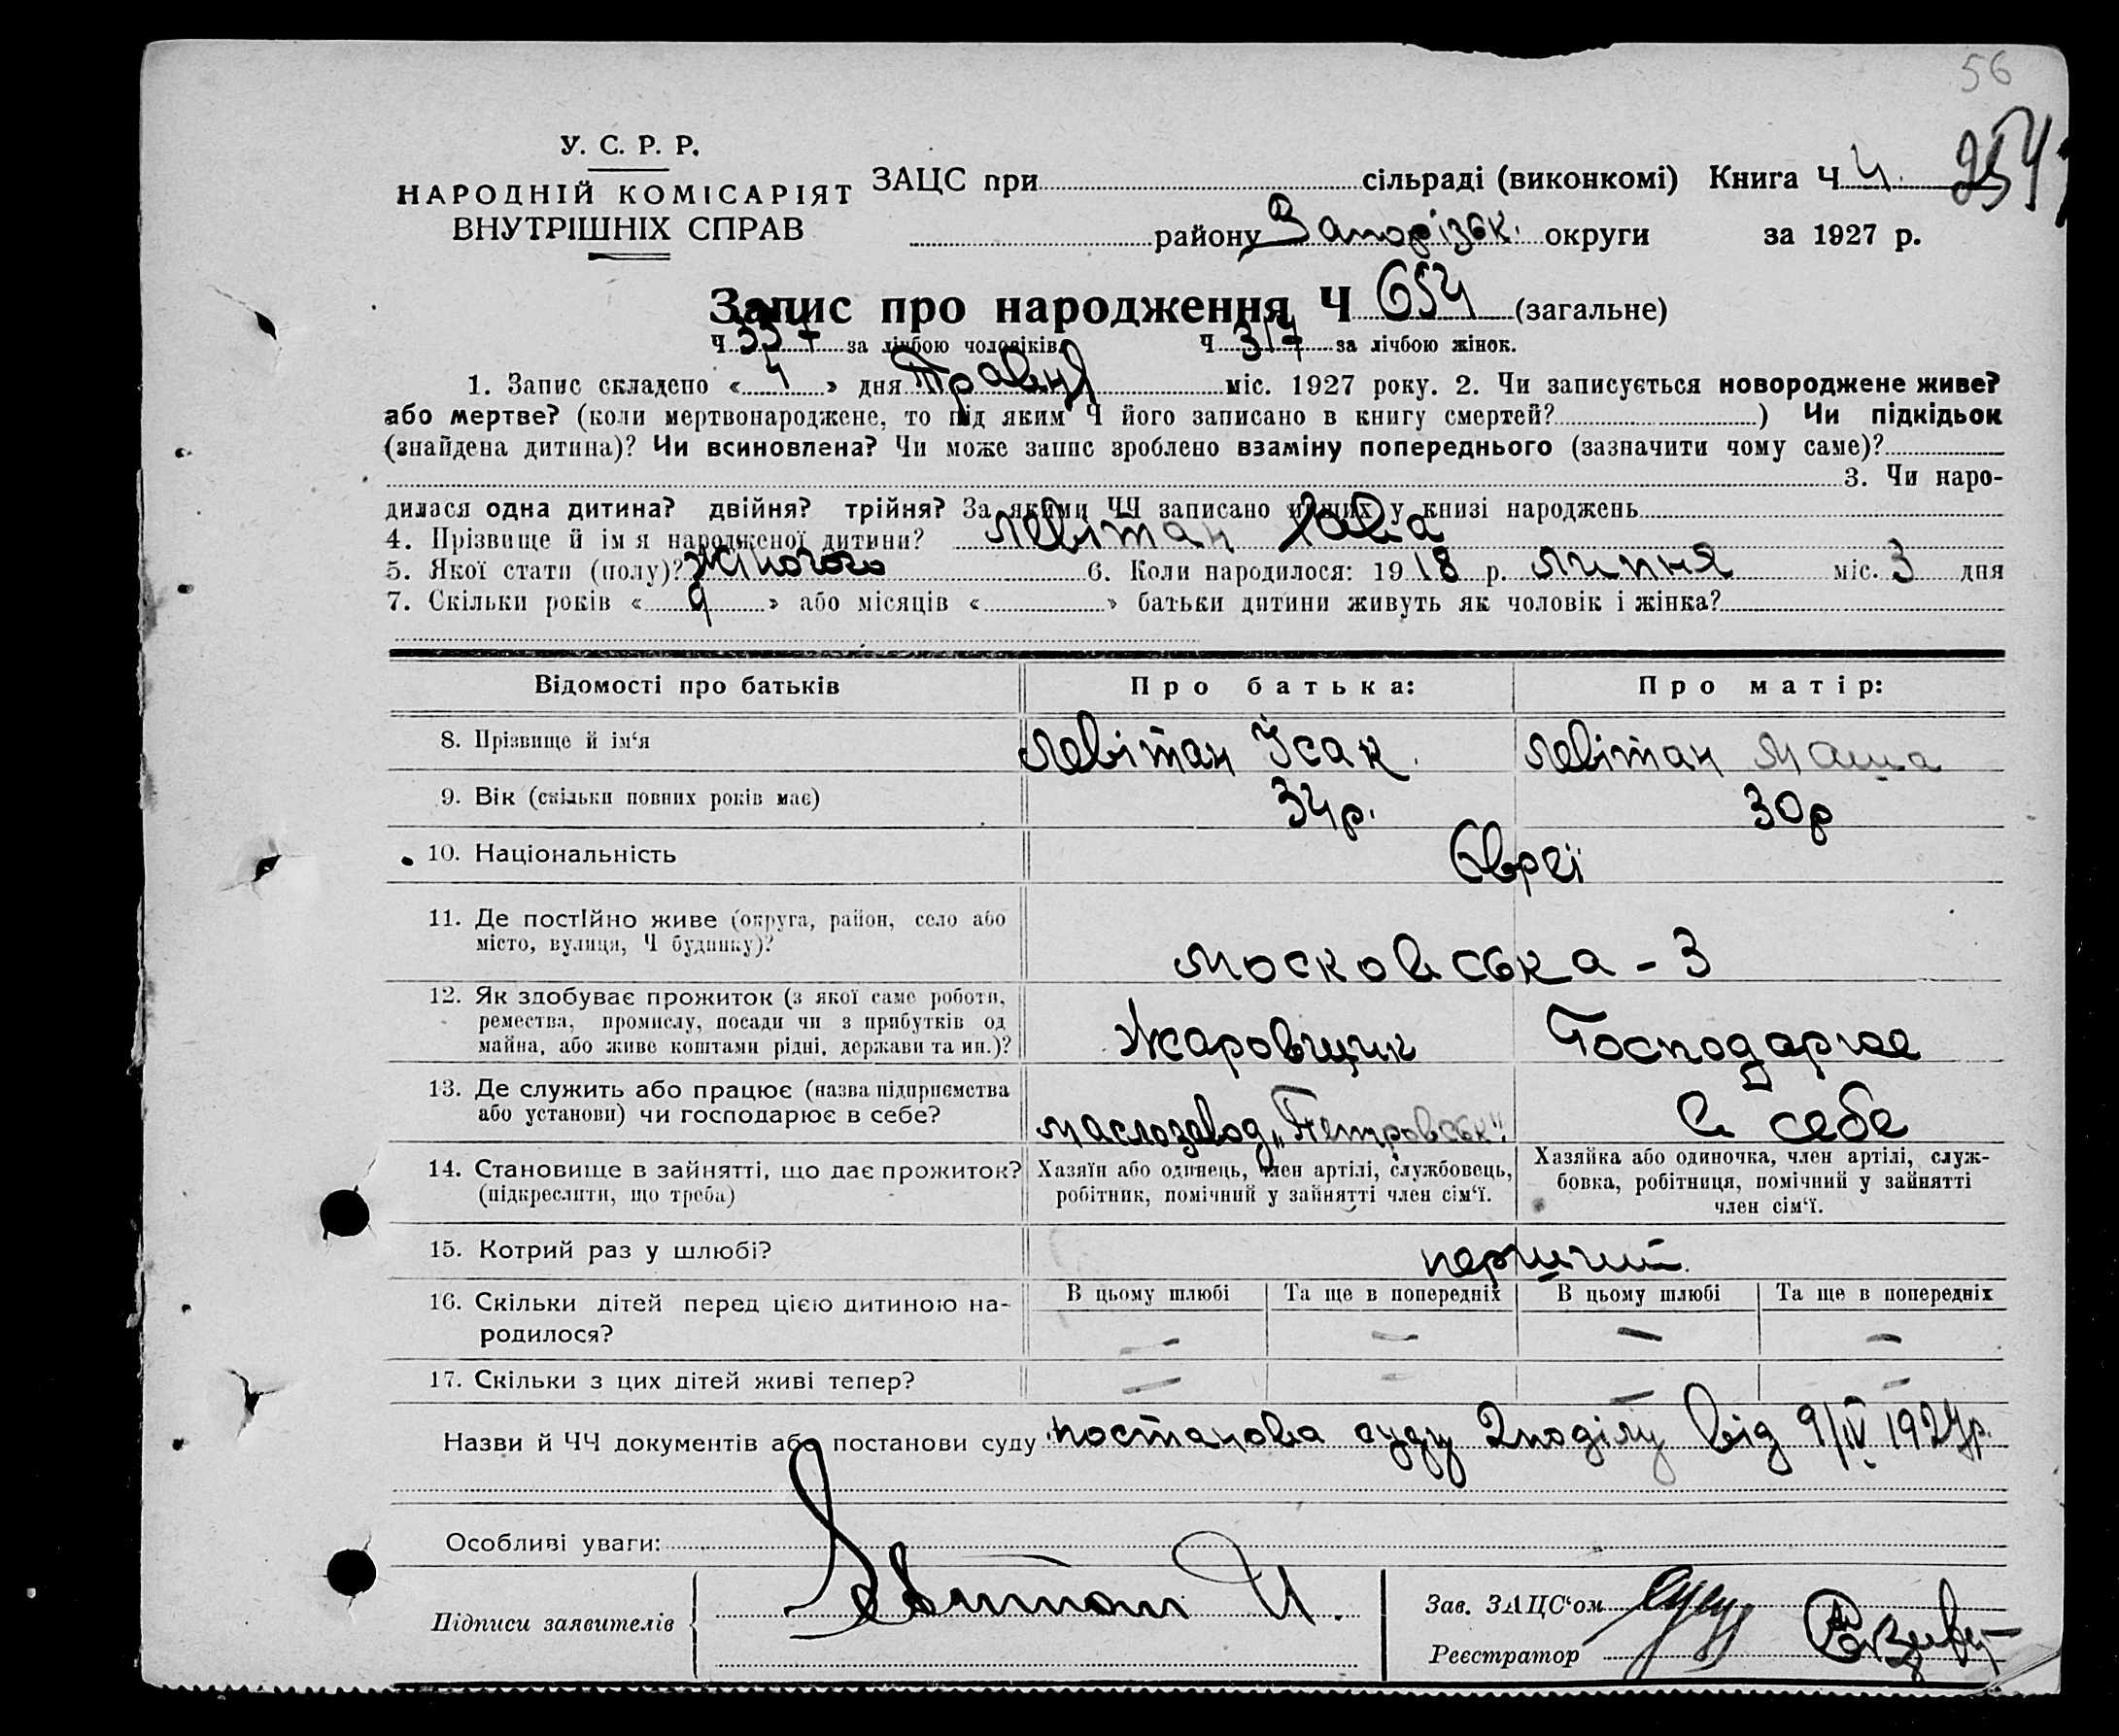 56
У. С. Р. Р.
НАРОДНІЙ КОМІСАРІЯТ
ВНУТРІШНІХ СПРАВ
ЗАЦС при сільраді (виконкомі) Книга Ч 4
району Запорізьк. округи за 1927 р.
Запис про народження Ч 654 (загальне)
Ч 337 за лічбою чоловіків. Ч 317 за лічбою жінок.
1. Запис складено « 4 » дня Травня міс. 1927 року. 2. Чи записується новороджене живе?
або мертве? (коли мертвонароджене, то під яким Ч його записано в книгу смертей? ) Чи підкідьок
(знайдена дитина)? Чи всиновлена? Чи може запис зроблено взаміну попереднього (зазначити чому саме)?
3. Чи наро-
дилася одна дитина? двійня? трійня? За якими ЧЧ записано инших у книзі народжень
4. Прізвище й ім'я народженої дитини? Левітан
5. Якої стати (полу)? Жіночого 6. Коли народилося: 1918 р. липня міс. 3 дня
7. Скільки років « 9 » або місяців « » батьки дитини живуть як чоловік і жінка?
Відомості про батьків Про батька: Про матір:
8. Прізвище й ім'я Левітан Ісак. Левітан Маша
9. Вік (скільки повних років має) 34р. 30р
10. Національність Євреї
11. Де постійно живе (округа, район, село або
місто, вулиця, Ч будинку)? Московська - 3
12. Як здобуває прожиток (з якої саме роботи,
ремества, промислу, посади чи з прибутків од
майна, або живе коштами рідні, держави та ин.)? Жаровщик Господарює
13. Де служить або працює (назва підприємства
або установи) чи господарює в себе? маслозавод „Петровськ". в себе
14. Становище в зайнятті, що дає прожиток?
(підкреслити, що треба)
Хазяїн або одинець, член артілі, службовець,
робітник, помічний у зайнятті член сім'ї.
Хазяйка або одиночка, член артілі, служ-
бовка, робітниця, помічний у зайнятті
член сім'ї.
15. Котрий раз у шлюбі? перший.
16. Скільки дітей перед цією дитиною на-
родилося?
В цьому шлюбі Та ще в попередніх В цьому шлюбі Та ще в попередніх
— — — —
17. Скільки з цих дітей живі тепер? — — — —
Назви й ЧЧ документів або постанови суду постанова суду 2 поділу від 9/IV 1927р.
Особливі уваги:
Підписи заявителів Левитан И.
Зав. ЗАЦС'ом
Реєстратор